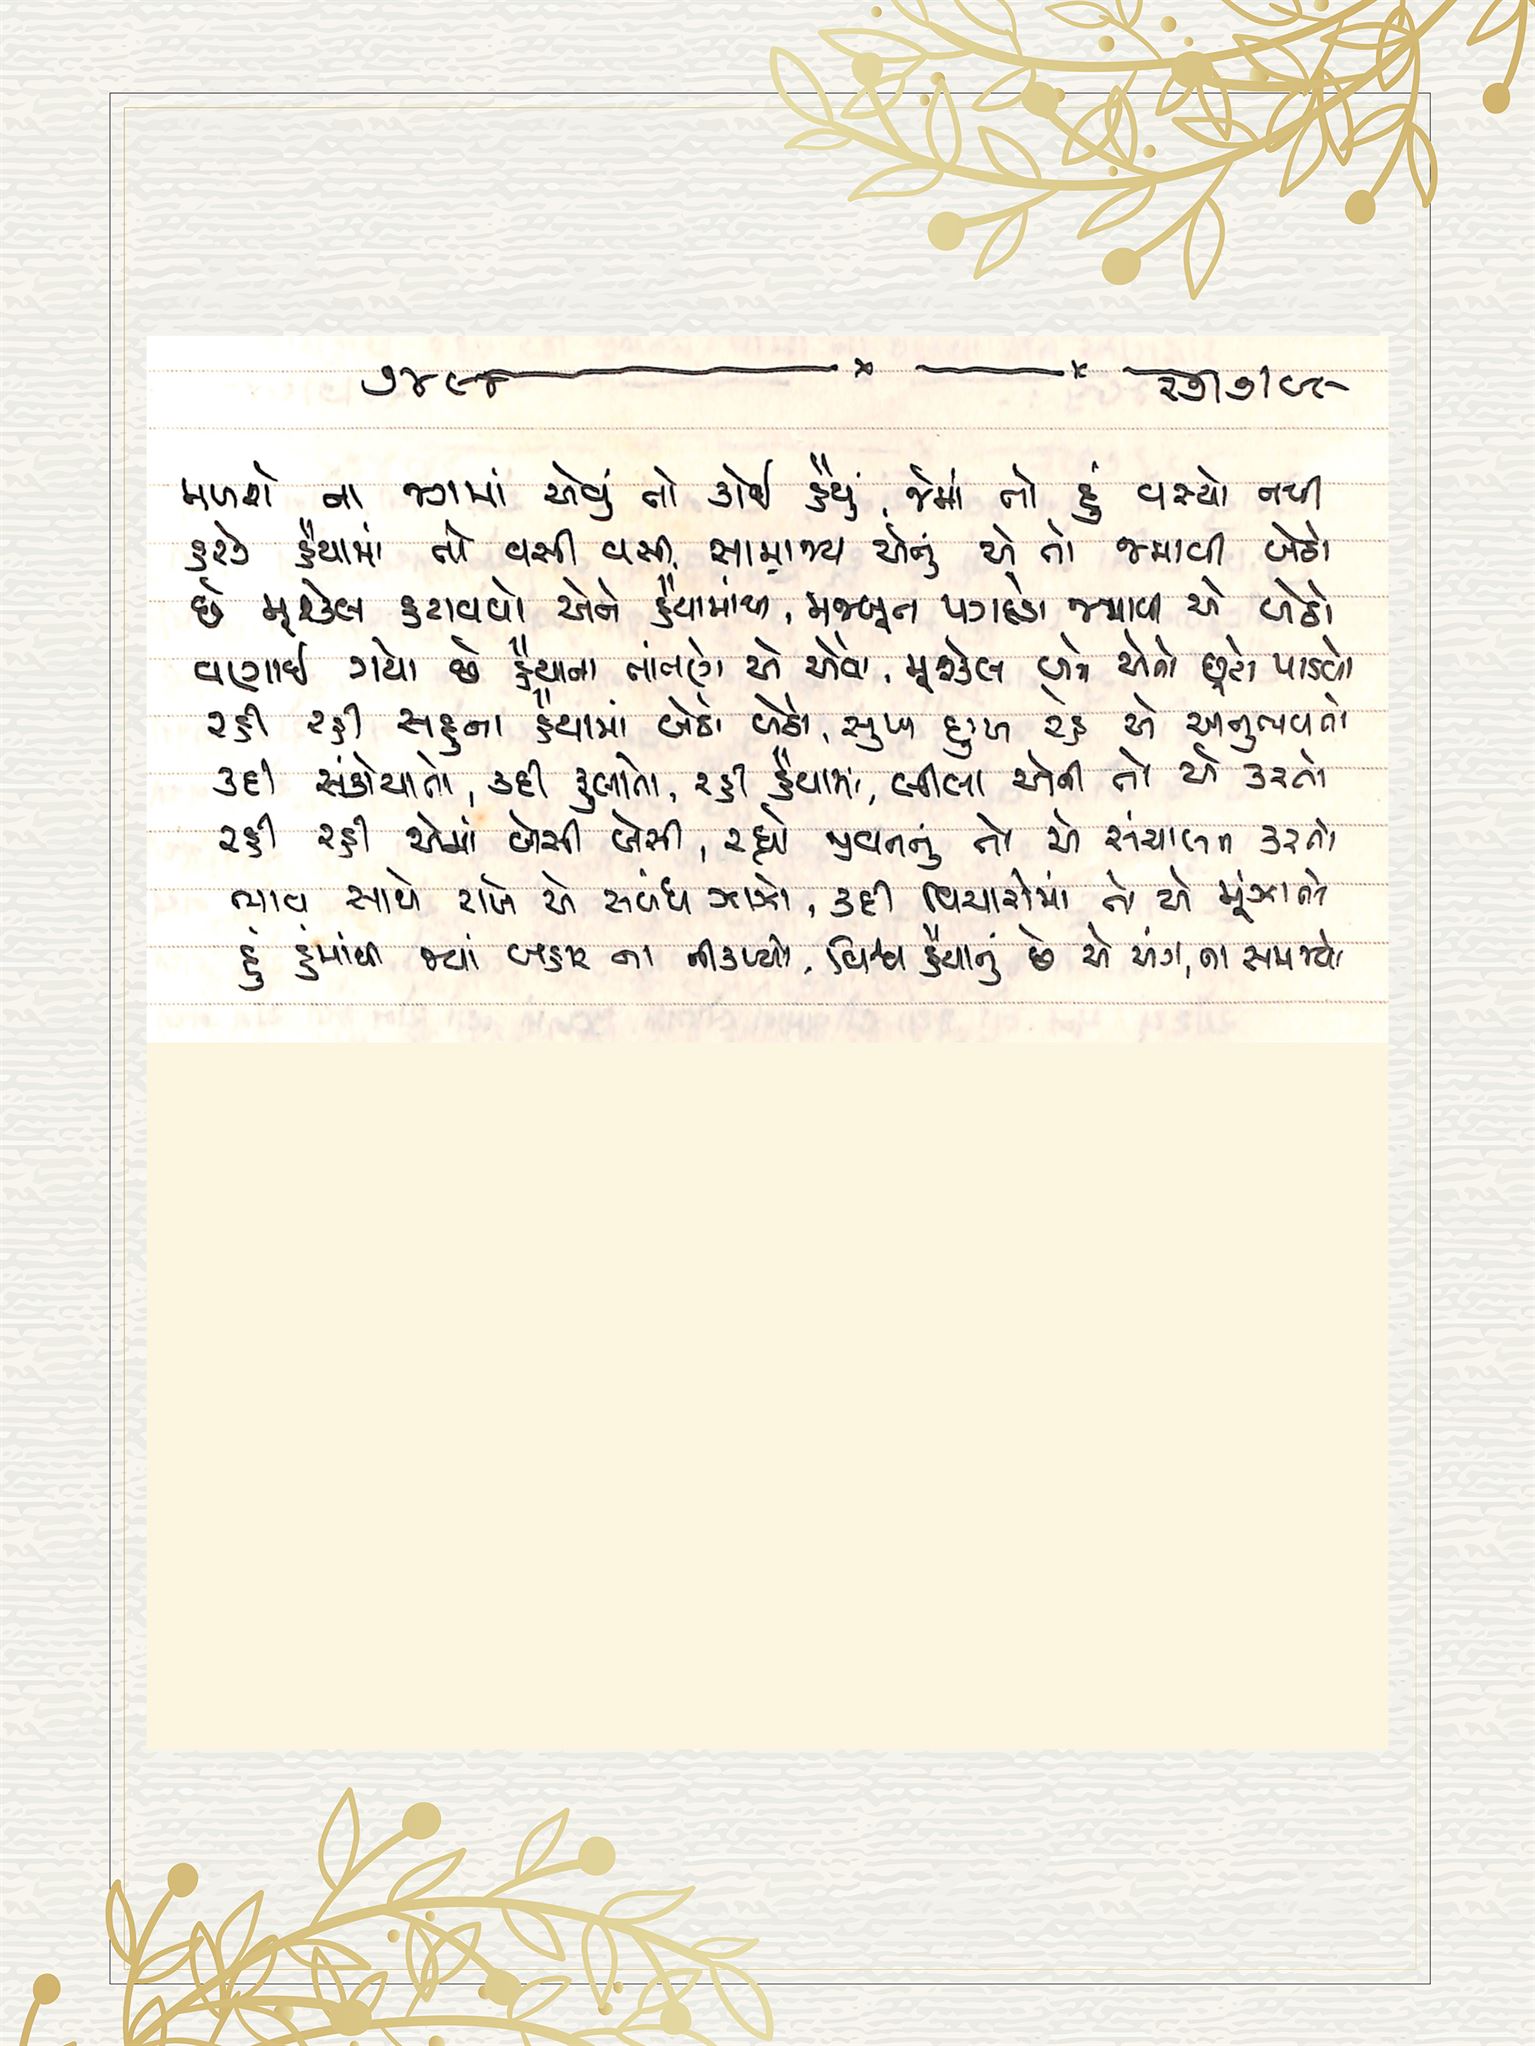 ૭૪૯૪ × × ૨૭/૭/૯૮
મળશે ના જગમાં એવું તો કોઈ હૈયું, જેમાં તો હું વસ્યો નથી
હરેક હૈયામાં તો વસી વસી, સામ્રાજ્ય એનું એ તો જમાવી બેઠો
છે મૂશ્કેલ હટાવવો એને હૈયામાંથી, મજબૂત પગદંડો જમાવી એ બેઠો
વણાઈ ગયો છે હૈયાના તાંતણે એ એવો, મૂશ્કેલ બને એને છૂટો પાડવો
રહી રહી સહુના હૈયામાં બેઠો બેઠો, સુખ દુઃખ એ અનુભવતો
કદી સંકોચાતો, કદી ફુલાતો, રહી હૈયામાં, લીલા એની તો એ કરતો
રહી રહી એમાં બેસી બેસી, રહ્યો જીવનનું તો એ સંચાલન કરતો
ભાવ સાથે રાખે એ સબંધ ઝાઝો, કદી વિચારોમાં તો એ મૂંઝાતો
હું હુંમાંથી જ્યાં બહાર ના નીકળ્યો, વિશ્વ હૈયાનું છે એ અંગ, ના સમજ્યો